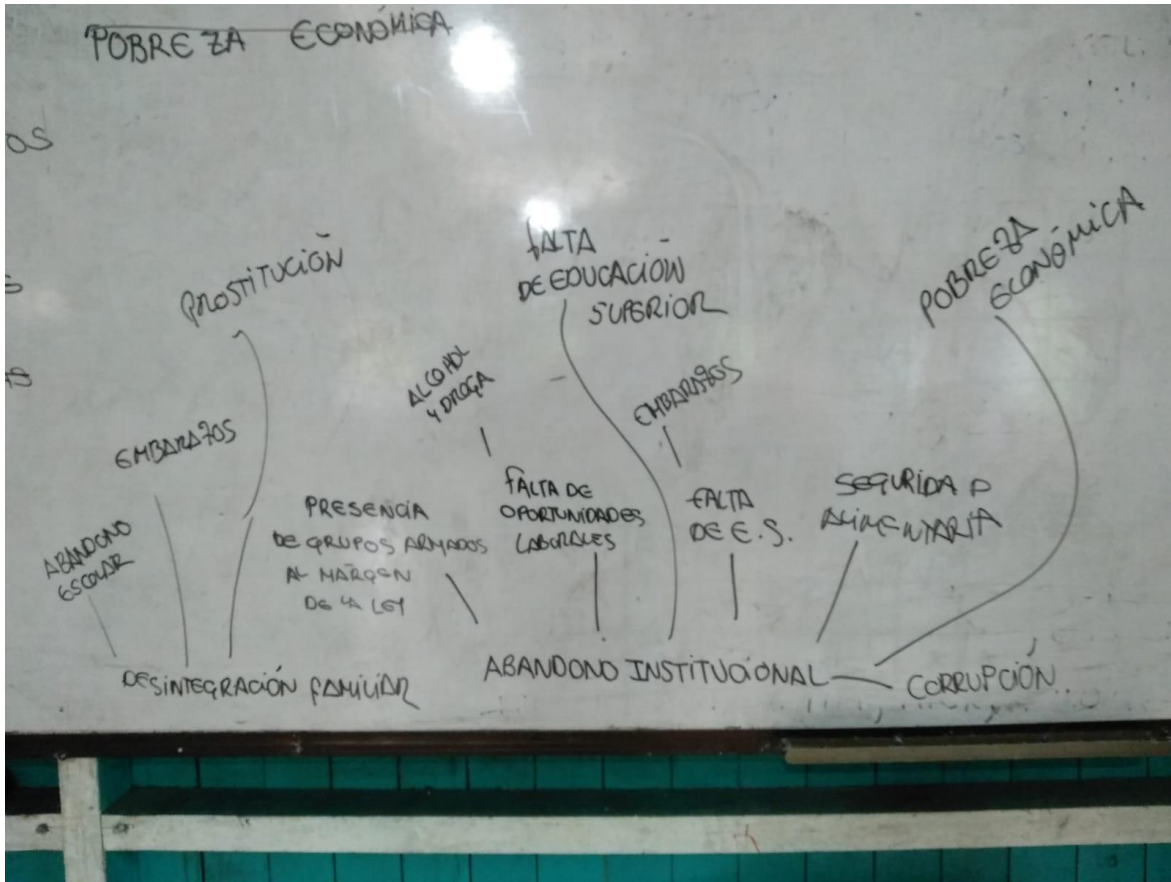 POBREZA ECONÓMICA
OS
PROSTITUCIÓN
FALTA
DE EDUCACIÓN
SUPERIOR
POBREZA
ECONÓMICA
ALCOHOL
Y DROGA
EMBARAZOS
EMBARAZOS
ABANDONO
ESCOLAR
PRESENCIA
DE GRUPOS ARMADOS
AL MARGEN
DE LA LEY
FALTA DE
OPORTUNIDADES
LABORALES
FALTA
DE E.S.
SEGURIDAD
ALIMENTARIA
DESINTEGRACIÓN FAMILIAR
ABANDONO INSTITUCIONAL
CORRUPCIÓN